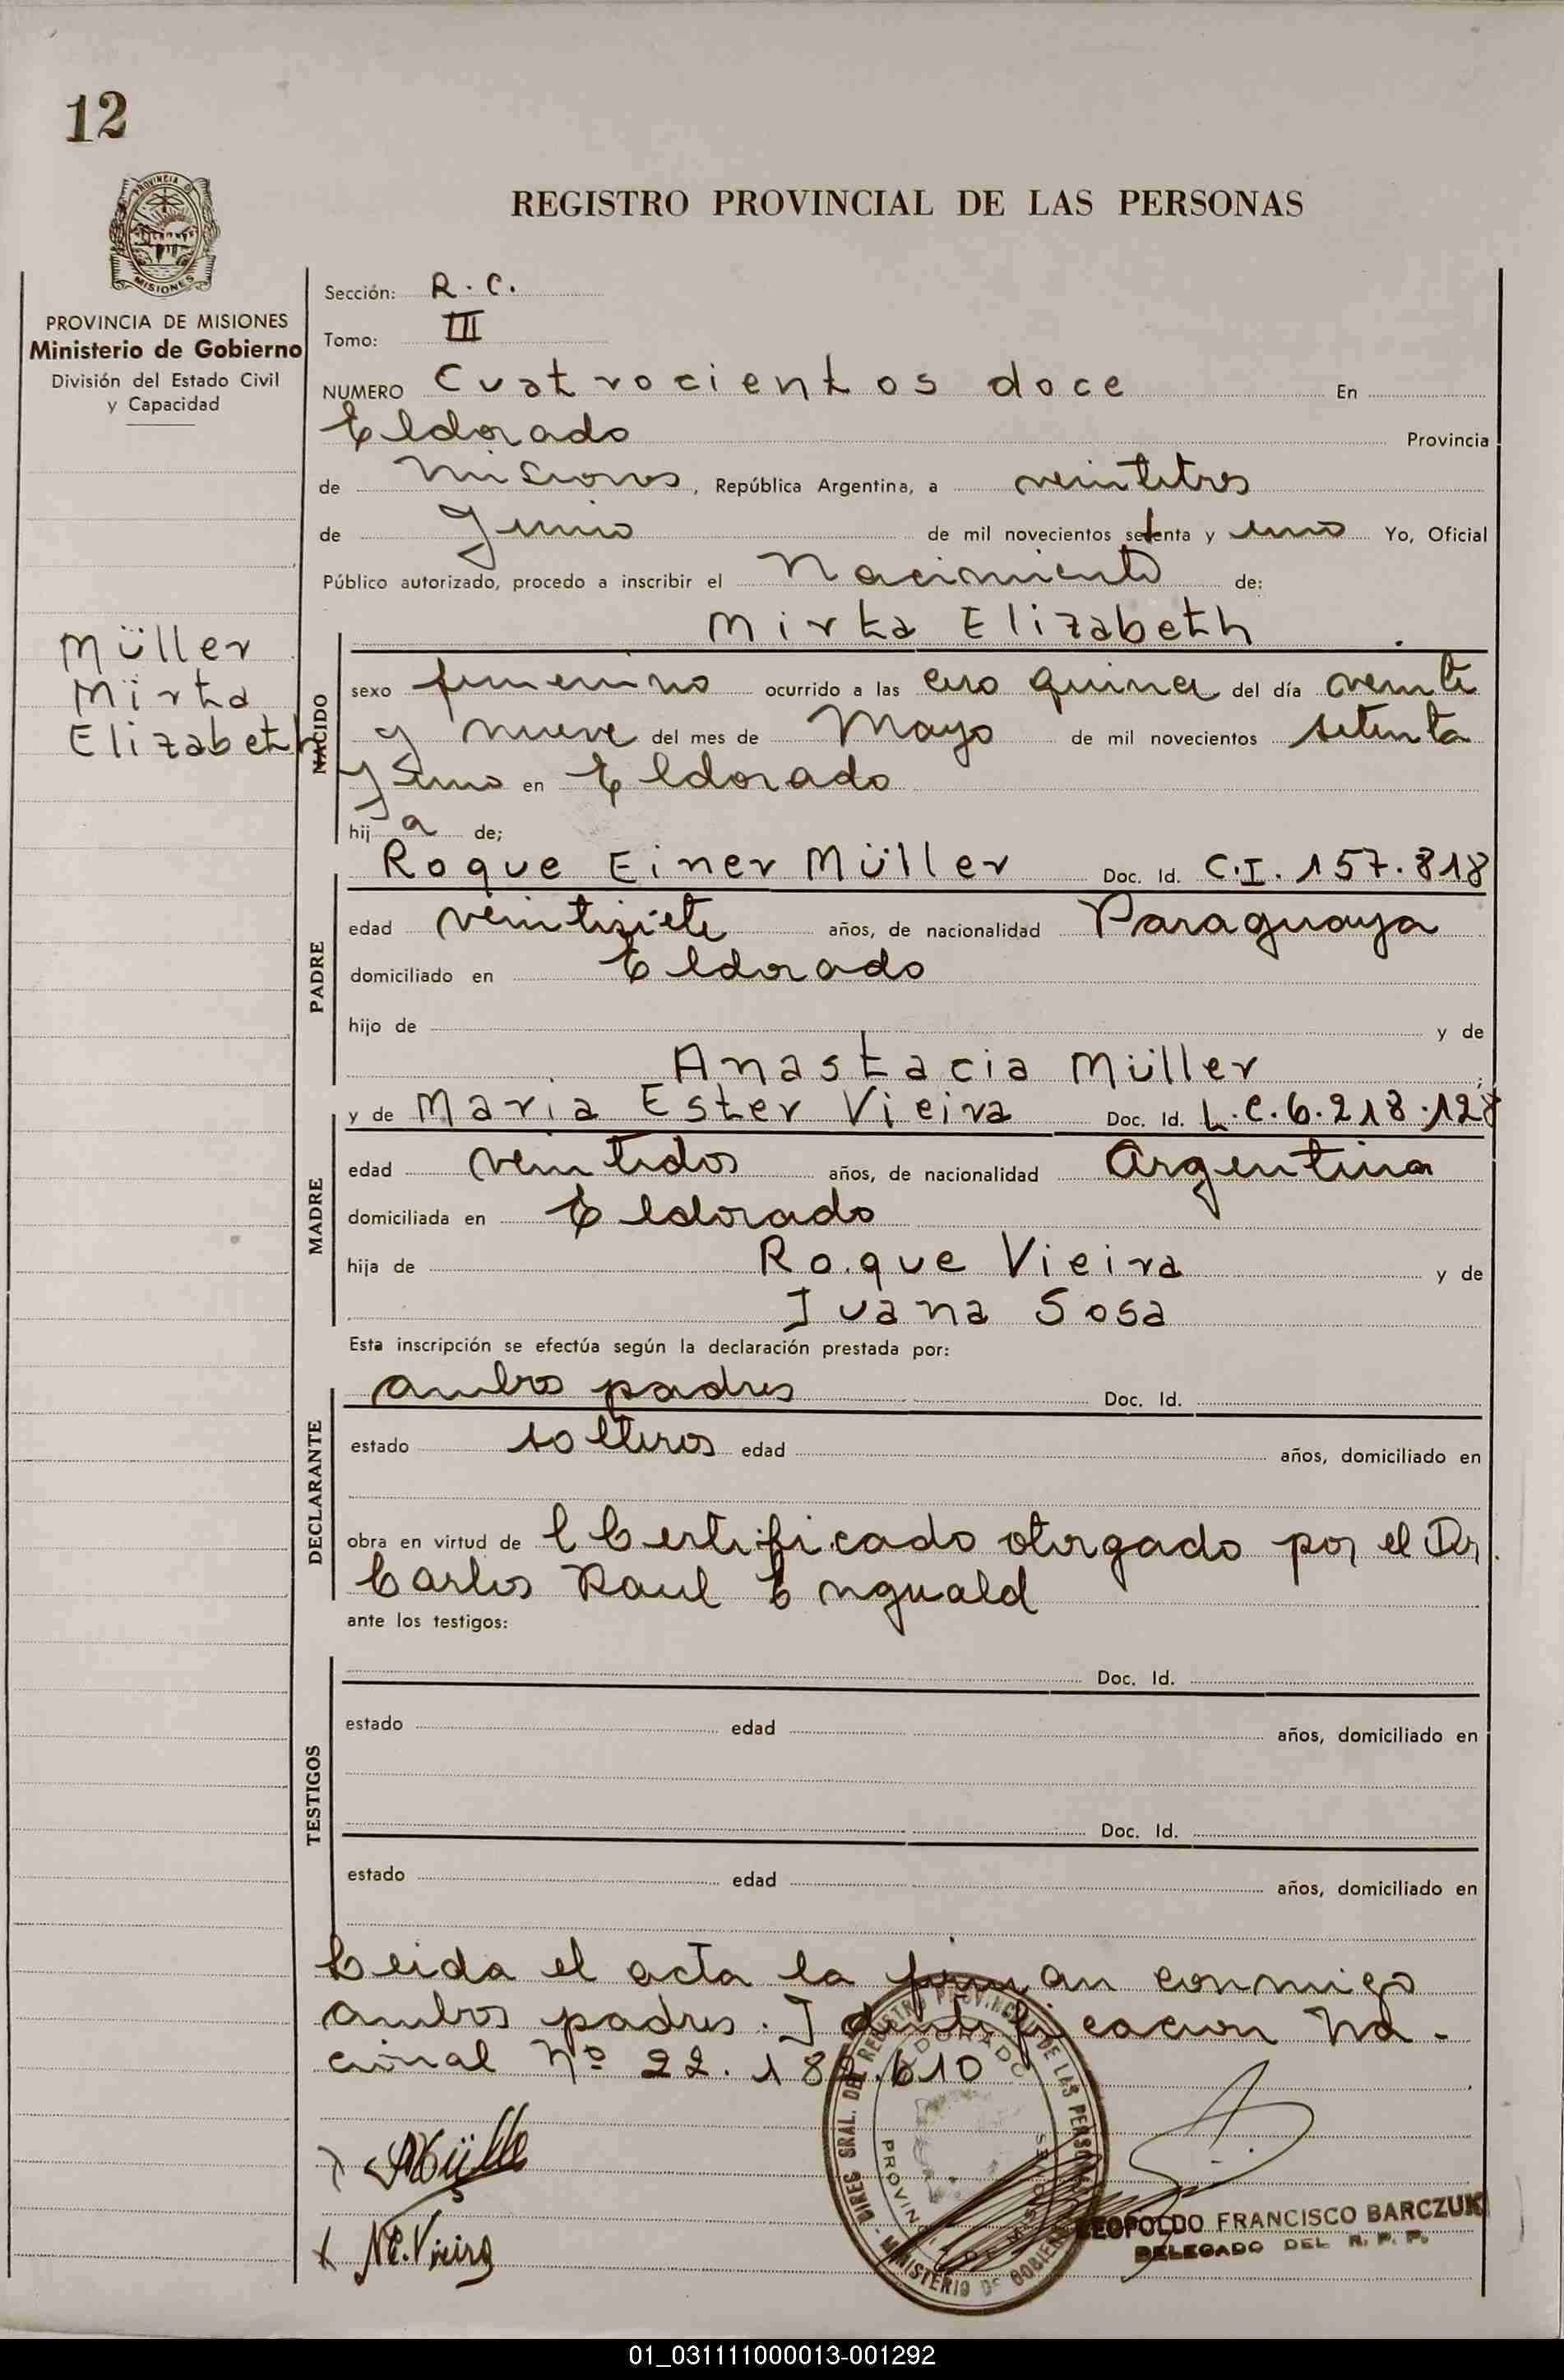 12
REGISTRO PROVINCIAL DE LAS PERSONAS
PROVINCIA DE
MISIONES
PROVINCIA DE MISIONES
Ministerio de Gobierno
División del Estado Civil
y Capacidad
Müller
Mirta
Elizabeth
Sección: R. C.
Tomo: III
NUMERO Cuatrocientos doce En
Eldorado Provincia
de Misiones, República Argentina, a veintitres
de Junio de mil novecientos setenta y uno Yo, Oficial
Público autorizado, procedo a inscribir el Nacimiento de:
Mirta Elizabeth
NACIDO
sexo femenino ocurrido a las cero quince del día veinti
y nueve del mes de Mayo de mil novecientos setenta
y uno en Eldorado
hij a de;
Roque Einer Müller Doc. Id. C.I. 157.818
PADRE
edad veintisiete años, de nacionalidad Paraguaya
domiciliado en Eldorado
hijo de y de
Anastacia Müller;
y de Maria Ester Vieira Doc. Id. L.C. 6.218.128
MADRE
edad veintidos años, de nacionalidad Argentina
domiciliada en Eldorado
hija de Roque Vieira y de
Juana Sosa
Esta inscripción se efectúa según la declaración prestada por:
ambos padres Doc. Id.
DECLARANTE
estado solteros edad años, domiciliado en
obra en virtud de l Certificado otorgado por el Dr.
Carlos Raul Enguald
ante los testigos:
TESTIGOS
Doc. Id.
estado edad años, domiciliado en
Doc. Id.
estado edad años, domiciliado en
Leida el acta la firman conmigo
ambos padres. Identificacion Na-
cional Nº 22.182.610
x Müller
x M.E. Vieira
DIREC GRAL. DEL REGISTRO PROVINCIAL DE LAS PERSONAS
MINISTERIO DE GOBIERNO
ELDORADO
LEOPOLDO FRANCISCO BARCZUK
DELEGADO DEL R. P. P.
01_031111000013-001292